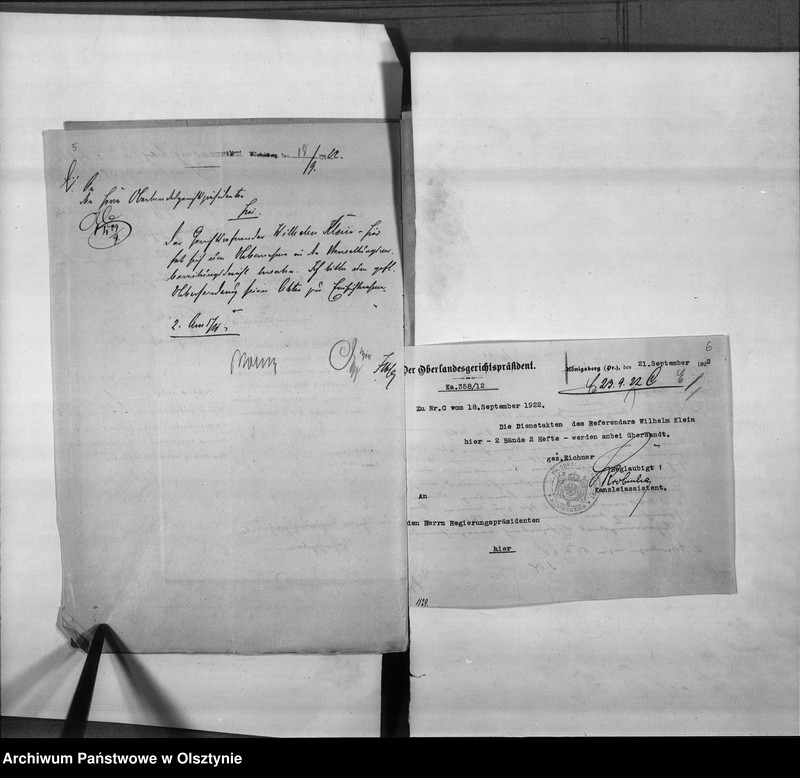 5
Königsberg, den 18/9. 22.
An
den Herrn Oberlandesgerichtspräsidenten
hier.
Der Gerichtsreferendar Wilhelm Klein - hier
hat sich um Übernahme in den Verwaltungsvor-
bereitungsdienst beworben. Ich bitte um gefl.
Übersendung seiner Akten zur Einsichtnahme.
2.
6
Der Oberlandesgerichtspräsident.
Königsberg (Pr.), den 21.September 1922
Ka.358/12
C 23.9.22 C
Zu Nr.C vom 18.September 1922.
Die Dienstakten des Referendars Wilhelm Klein
hier - 2 Bände 2 Hefte - werden anbei übersandt.
gez.Eichner
Beglaubigt :
Kanzleiassistent.
An
den Herrn Regierungspräsidenten
hier
1121.
Archiwum Państwowe w Olsztynie